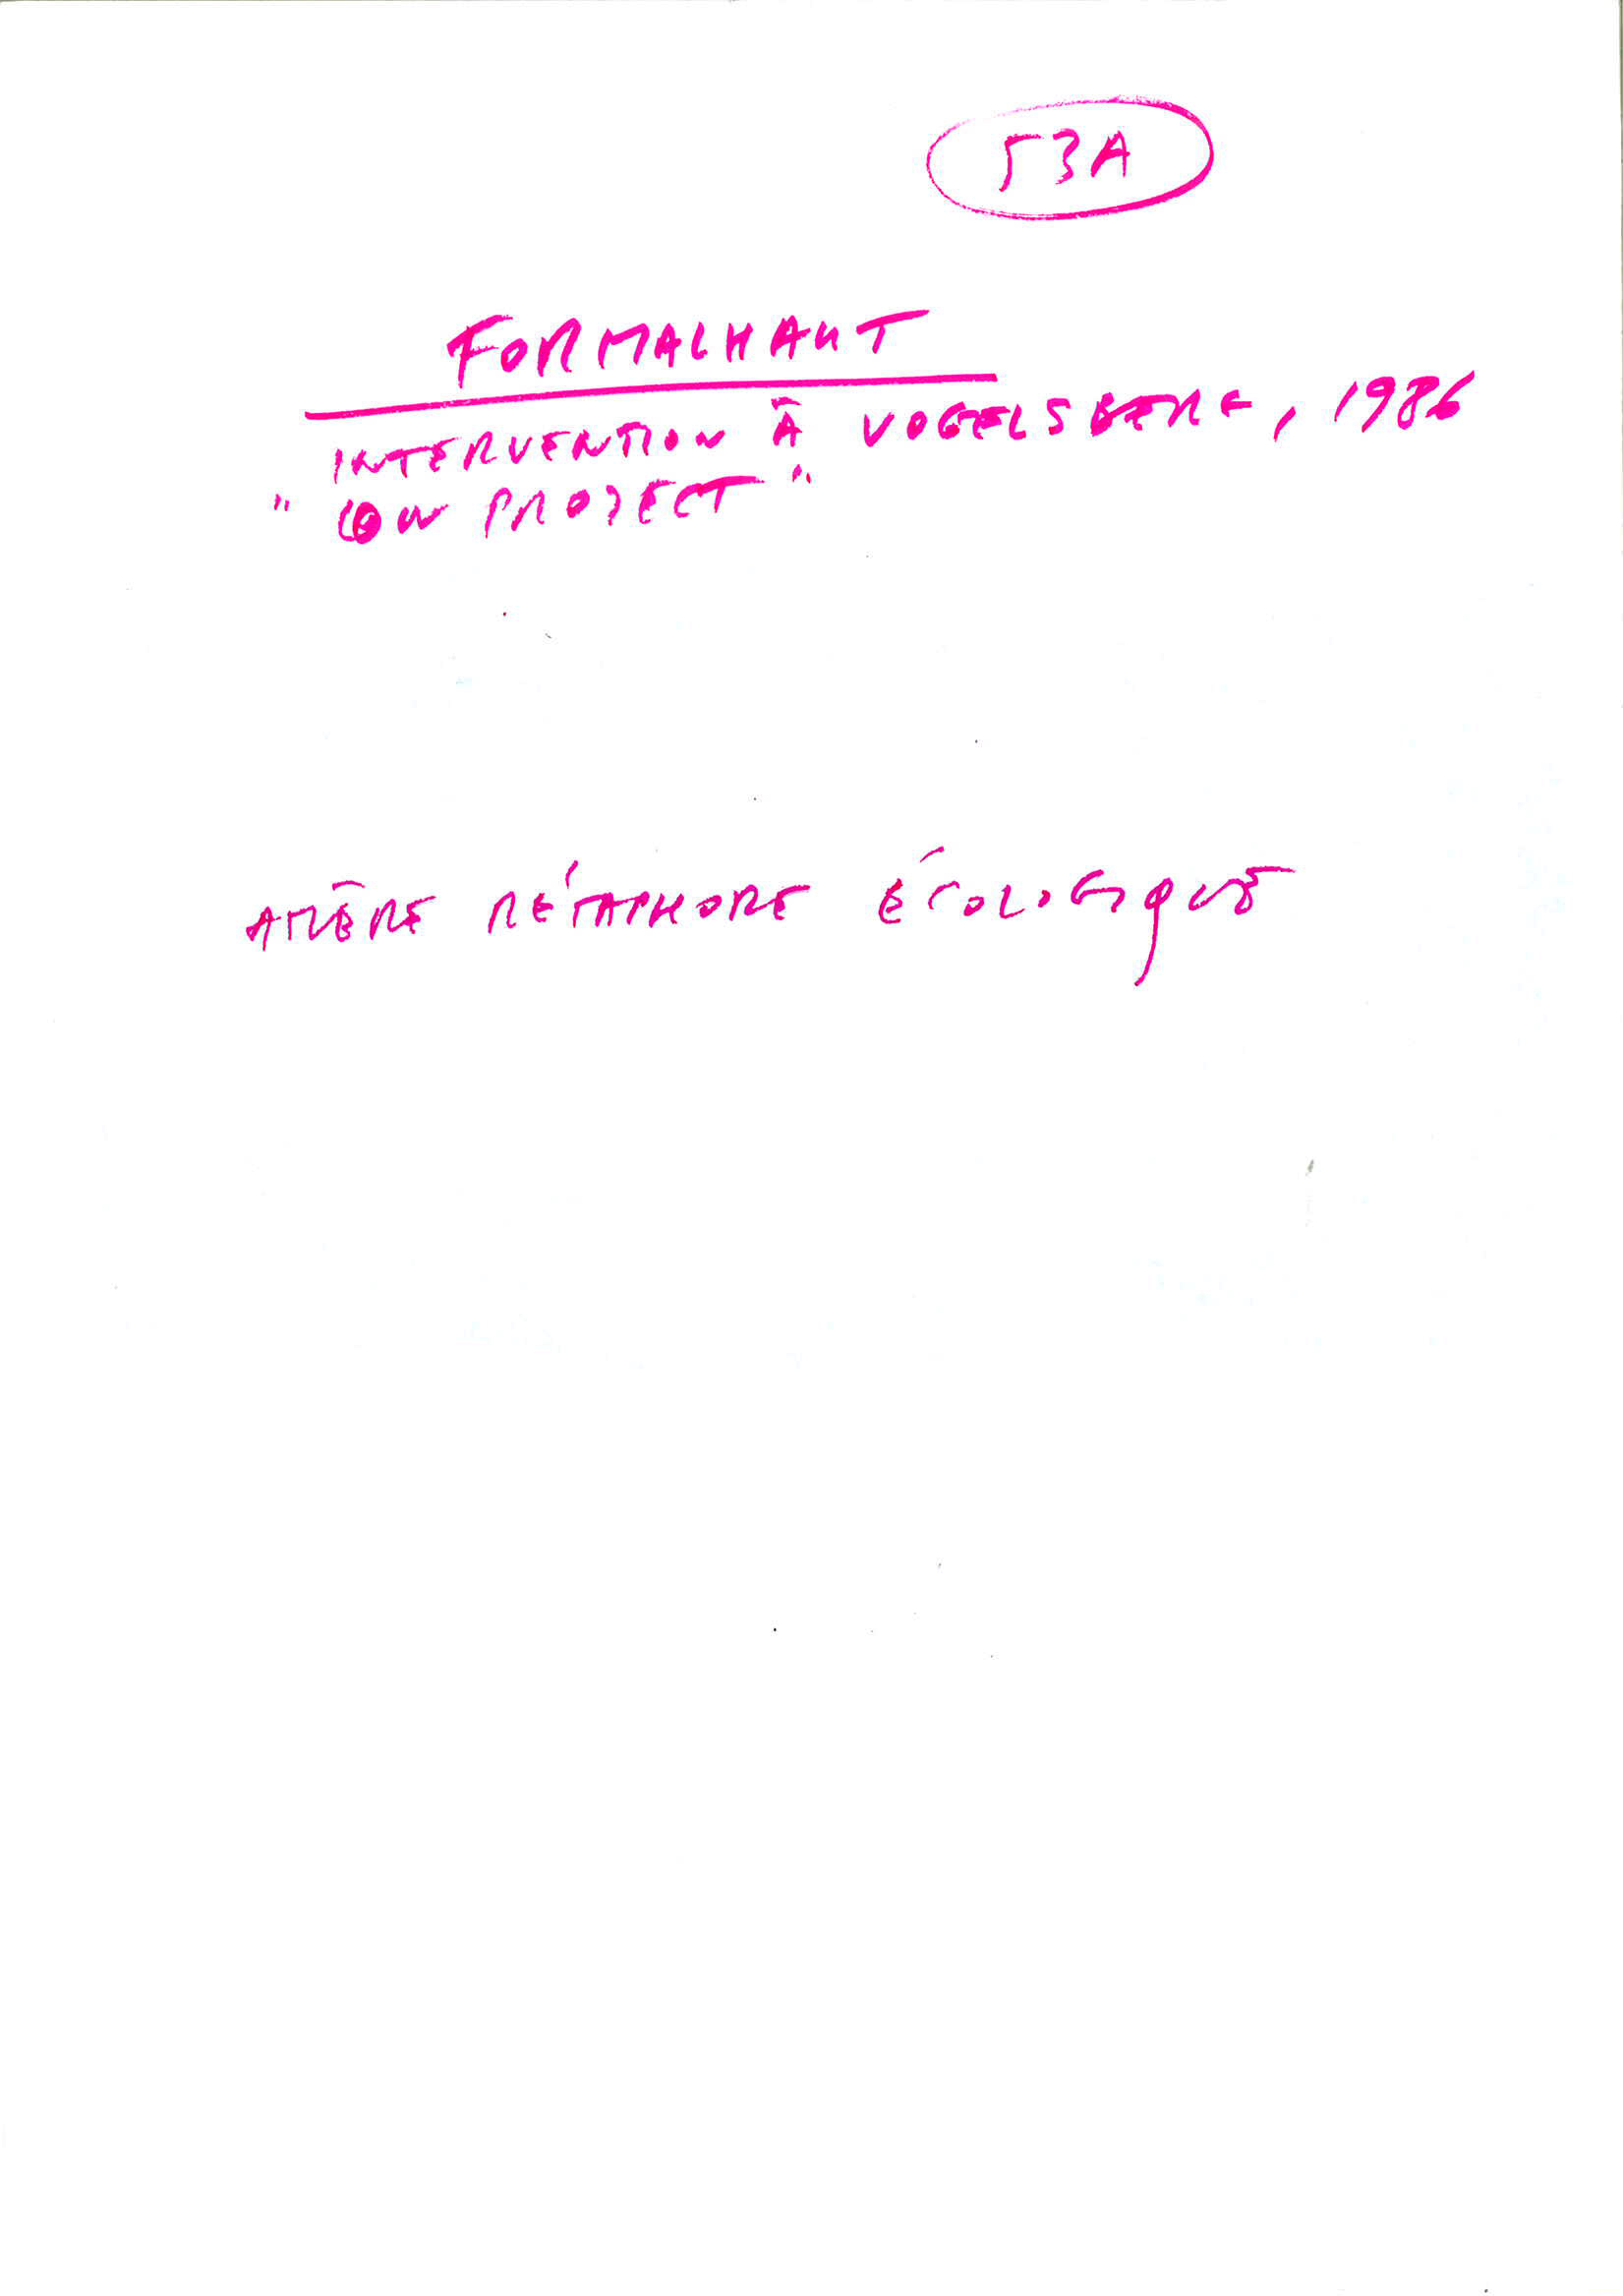 53A
FORMALHAUT
INTERVENTION À VOGELSBERG, 1986
"COW PROJECT"
AMÈRE MÉTAPHORE ÉCOLOGIQUE